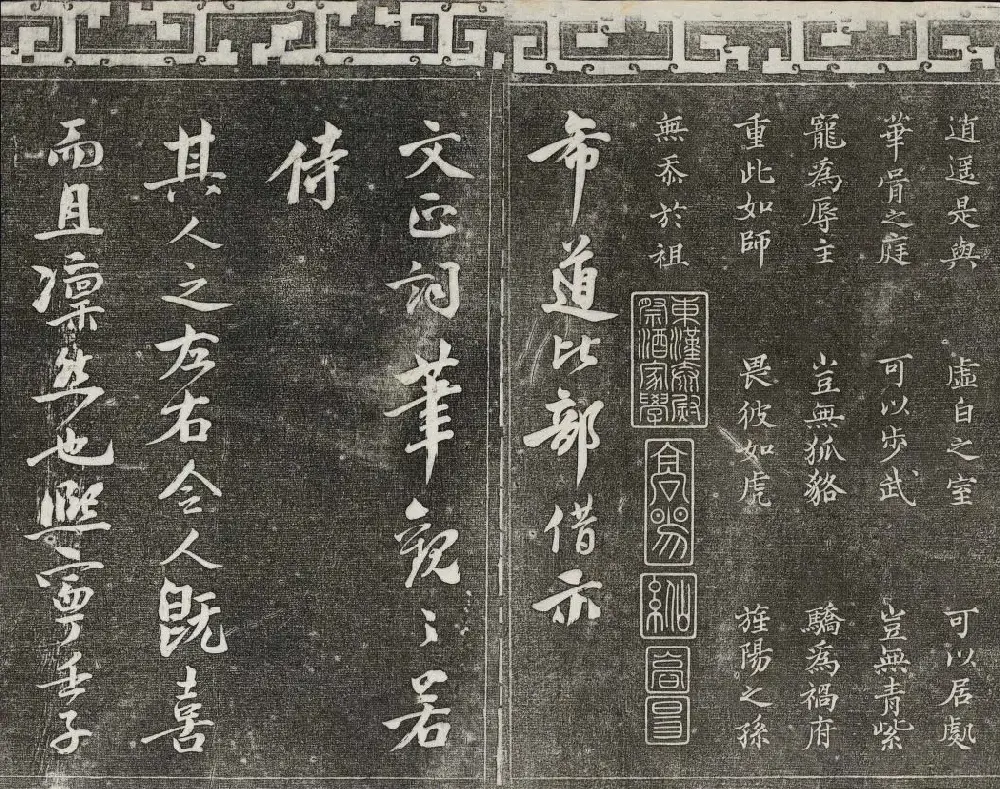 逍遥是與 虛自之室 可以居處
華胥之庭 可以步武 豈無青紫
寵為辱主 豈無狐貉 驕為禍府
重此如師 畏彼如虎 旌陽之孫
無忝於祖
東漢泰尉祭酒家學
希道比部借示
文正詞筆觀〻若
侍
其人之左右令人既喜
而且凜然也熙寧壬子